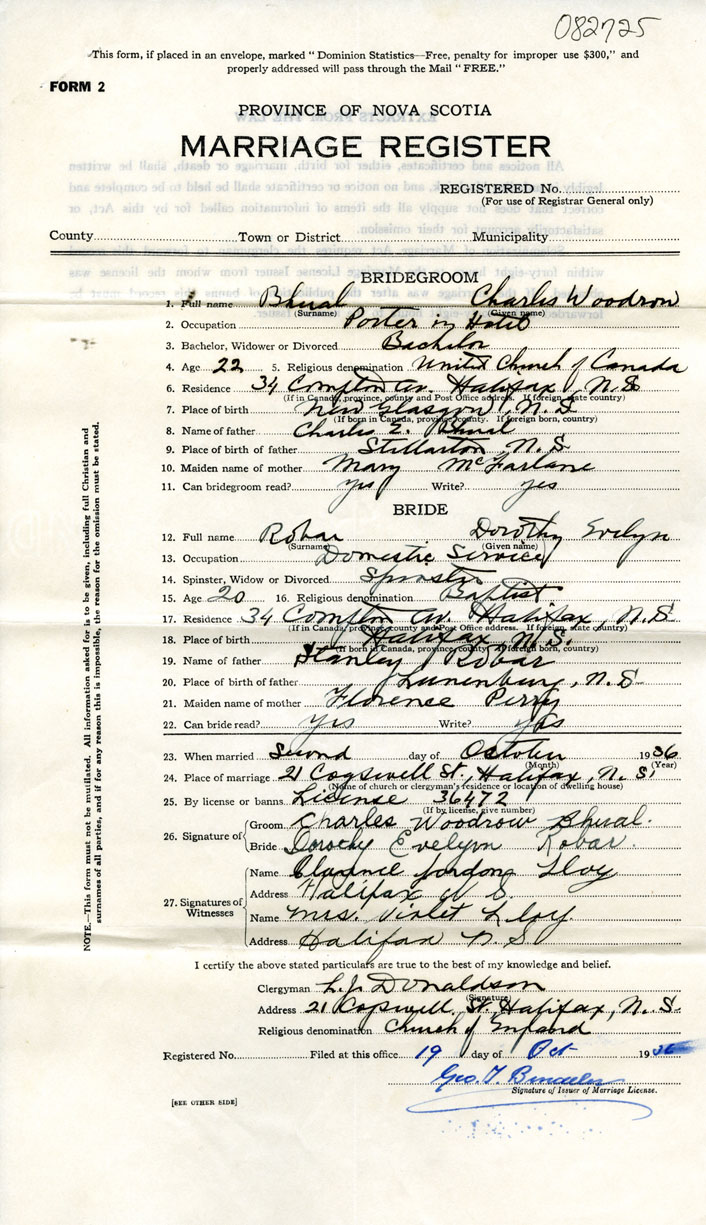 082725
This form, if placed in an envelope, marked "Dominion Statistics—Free, penalty for improper use $300," and
properly addressed will pass through the Mail "FREE."
FORM 2
PROVINCE OF NOVA SCOTIA
MARRIAGE REGISTER
REGISTERED No.
(For use of Registrar General only)
County Town or District Municipality
BRIDEGROOM
1. Full name Bhual Charles Woodrow
(Surname) (Given name)
2. Occupation Porter in Hotel
3. Bachelor, Widower or Divorced Bachelor
4. Age 22 5. Religious denomination United Church of Canada
6. Residence 34 Compton Av. Halifax, N.S
(If in Canada, province, county and Post Office address. If foreign, state country)
7. Place of birth New Glasgow, N.S
(If born in Canada, province, county. If foreign born, country)
8. Name of father Charles E. Bhual
9. Place of birth of father Stellarton, N.S
10. Maiden name of mother Mary McFarlane
11. Can bridegroom read? yes Write? yes
BRIDE
12. Full name Robar Dorothy Evelyn
(Surname) (Given name)
13. Occupation Domestic Service
14. Spinster, Widow or Divorced Spinster
15. Age 20 16. Religious denomination Baptist
17. Residence 34 Compton Av. Halifax, N.S
(If in Canada, province, county and Post Office address. If foreign, state country)
18. Place of birth Halifax, N.S.
(If born in Canada, province, county, If foreign born, country)
19. Name of father Stanley Robar
20. Place of birth of father Lunenburg, N.S
21. Maiden name of mother Florence Perry
22. Can bride read? yes Write? yes
23. When married Second day of October 1936
(Month) (Year)
24. Place of marriage 21 Cogswell St, Halifax, N.S,
(Name of church or clergyman's residence or location of dwelling house)
25. By license or banns License 36472
(If by license, give number)
26. Signature of Groom Charles Woodrow Bhual.
Bride Dorothy Evelyn Robar.
27. Signatures of Witnesses Name Clarence Lloy
Address Halifax N S.
Name Mrs. Violet Lloy.
Address Halifax N.S
I certify the above stated particulars are true to the best of my knowledge and belief.
Clergyman L.J. Donaldson
(Signature)
Address 21 Cogswell St. Halifax, N.S.
Religious denomination Church of England
Registered No. Filed at this office 19 day of Oct 1936
Geo. T.
Signature of Issuer of Marriage License.
[SEE OTHER SIDE]
NOTE.—This form must not be mutilated. All information asked for is to be given, including full Christian and
surnames of all parties, and if for any reason this is impossible, the reason for the omission must be stated.